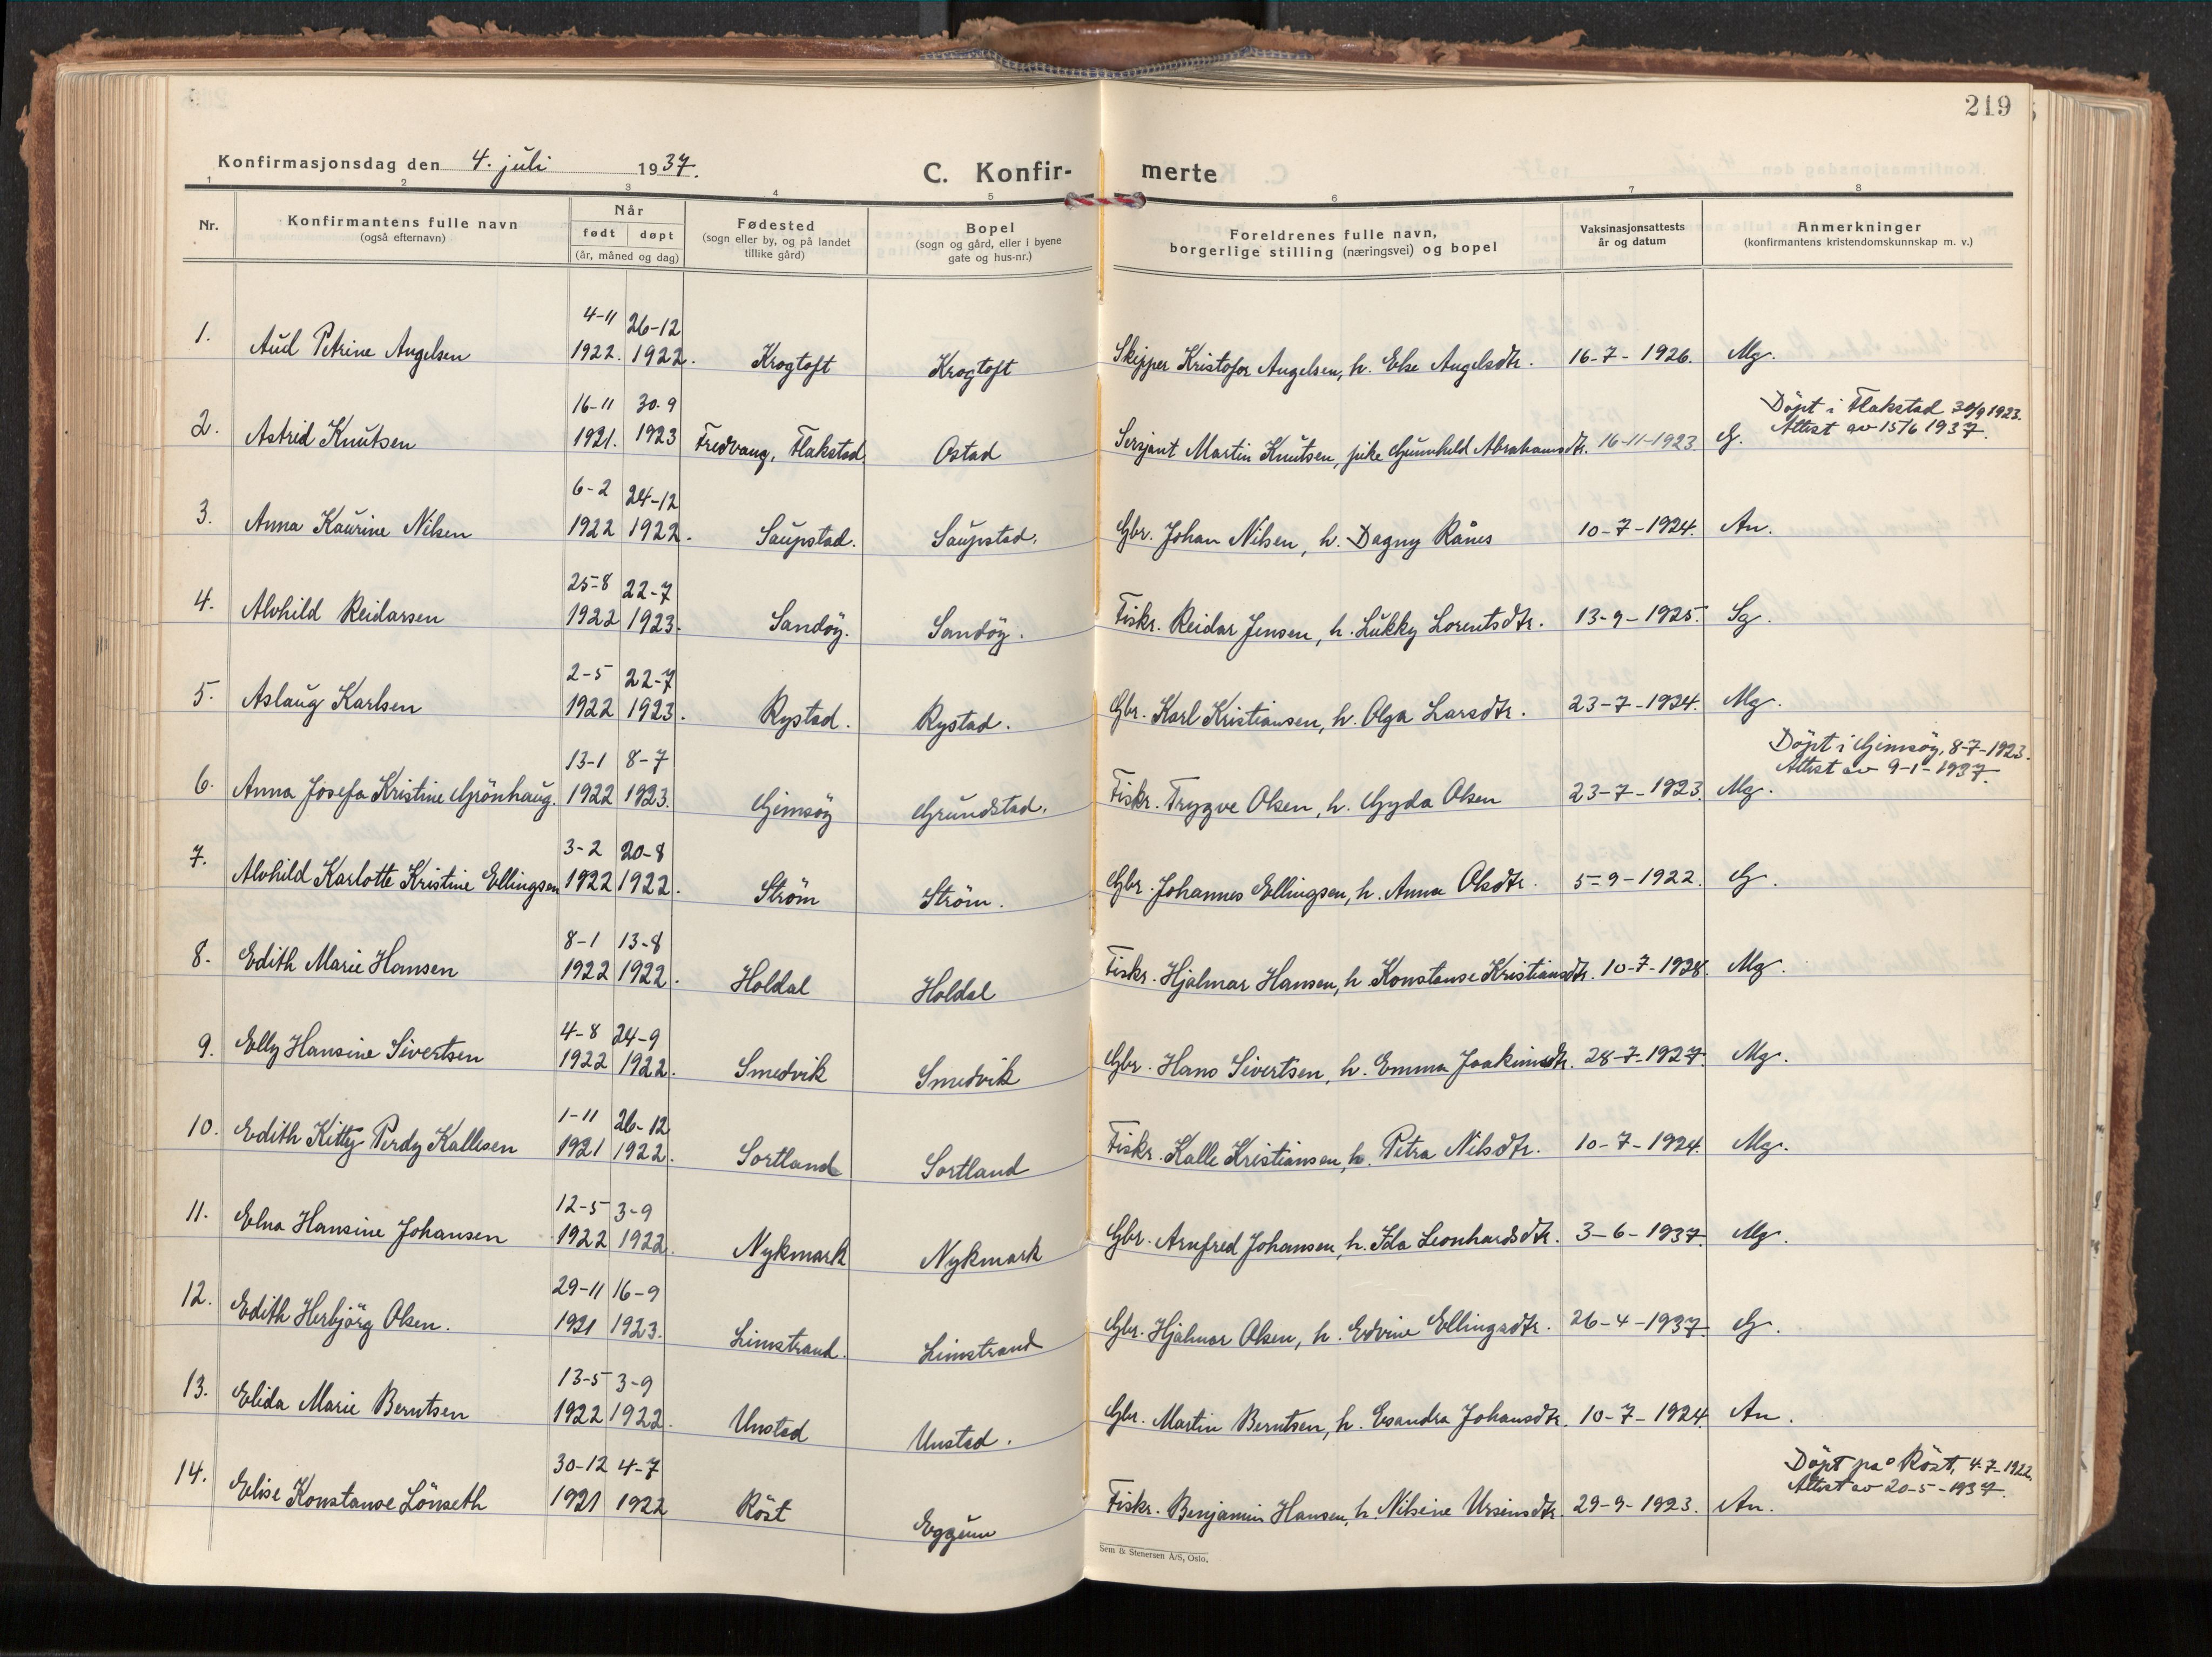 219
Konfirmasjonsdag den 4. juli 1937.
C. Konfir- merte
1 2 3 4 5 6 7 8
Nr.
Konfirmantens fulle navn
(også efternavn)
Når
født døpt
(år, måned og dag)
Fødested
(sogn eller by, og på landet
tillike gård)
Bopel
(sogn og gård, eller i byene
gate og hus-nr.)
Foreldrenes fulle navn,
borgerlige stilling (næringsvei) og bopel
Vaksinasjonsattests
år og datum
Anmerkninger
(konfirmantens kristendomskunnskap m. v.)
4-11 26-12
1. Aud Petrine Angelsen 1922. 1922. Krogtoft Krogtoft Skipper Kristofor Angelsen, h. Else Angelsdtr. 16-7-1926. Mg.
16-11 30-9 Döpt i Flakstad 30/9 1923.
2. Astrid Knutsen 1921. 1923 Fredvang, Flakstad. Ostad Sersjant Martin Knutsen, pike Gunnhild Abrahamsdtr. 16-11-1923. G. Attest av 15/6 1937.
6-2 24-12
3. Anna Kaurine Nilsen 1922 1922. Saupstad. Saupstad. Gbr. Johan Nilsen, h. Dagny Rånes 10-7-1924. An.
25-8 22-7
4. Alvhild Reidarsen 1922 1923. Sandöy. Sandöy. Fiskr. Reidar Jensen, h. Lukky Lorentsdtr. 13-9-1925. Sg.
2-5 22-7
5. Aslaug Karlsen 1922 1923. Rystad. Rystad. Gbr. Karl Kristiansen, h. Olga Larsdtr. 23-7-1924. Mg.
13-1 8-7 Döpt i Gimsöy, 8-7-1923.
6. Anna Josefa Kristine Grönhaug. 1922 1923. Gimsöy Grundstad. Fiskr. Trygve Olsen, h. Gyda Olsen 23-7-1923. Mg. Attest av 9-1-1937.
3-2 20-8
7. Alvhild Karlotte Kristine Ellingsen 1922 1922. Ström Ström. Gbr. Johannes Ellingsen, h. Anna Olsdtr. 5-9-1922. G.
8-1 13-8
8. Edith Marie Hansen 1922 1922. Holdal Holdal Fiskr. Hjalmar Hansen, h. Konstanse Kristiansdtr. 10-7-1928. Mg.
4-8 24-9
9. Elly Hansine Sivertsen 1922 1922. Smedvik Smedvik Gbr. Hans Sivertsen, h. Emma Joakimsdtr. 28-7-1927. Mg.
1-11 26-12
10. Edith Kitty Perdy Kallesen 1921 1922. Sortland Sortland Fiskr. Kalle Kristiansen, h. Petra Nilsdtr. 10-7-1924. Mg.
12-5 3-9
11. Elna Hansine Johansen 1922 1922. Nykmark Nykmark Gbr. Arnfred Johansen, h. Ida Leonhardsdtr. 3-6-1937. Mg.
29-11 16-9
12. Edith Herbjörg Olsen. 1921 1923. Limstrand. Limstrand Gbr. Hjalmar Olsen, h. Edvine Ellingsdtr. 26-4-1937. G.
13-5 3-9
13. Elida Marie Berntsen 1922 1922. Unstad Unstad. Gbr. Martin Berntsen, h. Esandra Johansdtr. 10-7-1924. An.
30-12 4-7 Döpt på Röst, 4-7-1922.
14. Elise Konstanse Lönseth 1921 1922 Röst Eggum Fiskr. Benjamin Hansen, h. Nilsine Ursinsdtr. 29-9-1923. An. Attest av 20-5-1937.
Sem & Stenersen A/S, Oslo.